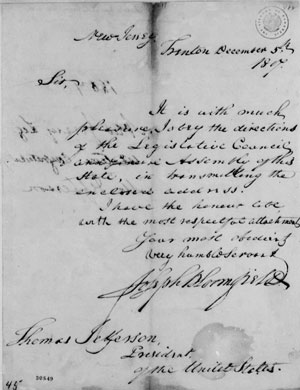 New Jersey
Trenton December 5th
1807.
Sir,
It is with much
pleasure I obey the directions
of the Legislative Council
and Assembly of this
State, in transmitting the
enclosed address.
I have the honour to be
with the most respectful attachment
Your most obedient
very humble servant
Joseph Bloomfield
Thomas Jefferson,
President
of the United States.
45
30549